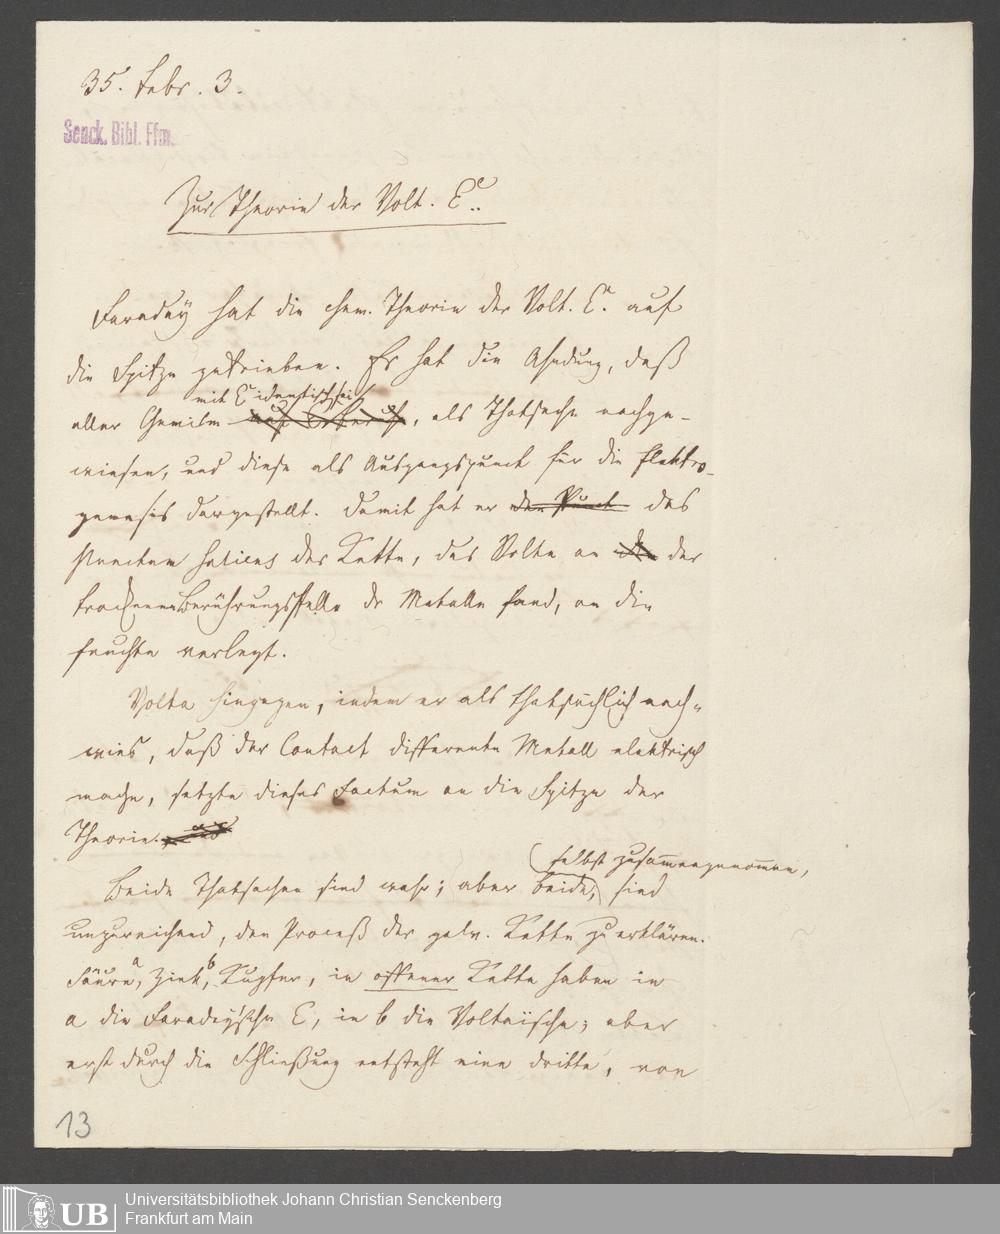 35. Febr. 3.
Senck. Bibl. Ffm.
Zur Theorie der Volt. E.
Faraday hat die chem. Theorie der Volt. E. auf
die Spitze getrieben. Er hat die Ahndung, daß
mit E identisch sei
aller Chemism , als Thatsache nachge-
wiesen, und diese als Ausgangspunct für die Elektro-
genesis dargestellt. Damit hat er den Punct das
Punctum saliens der Kette, das Volta an der
trockenen Berührungsstelle der Metalle fand, an die
feuchte verlegt.
Volta hingegen, indem er als thatsächlich nach-
wies, daß der Contact differente Metall elektrisch
mache, setzte dieses Factum an die Spitze der
Theorie. und
selbst zusammengenommen,
Beide Thatsachen sind wahr; aber beide, sind
unzureichend, den Proceß der galv. Kette zu erklären.
a b
Säure, Zink, Kupfer, in offener Kette haben in
a die Faraday'sche E, in b die Voltaische; aber
erst durch die Schließung entsteht eine dritte, von
13
UB
Universitätsbibliothek Johann Christian Senckenberg
Frankfurt am Main